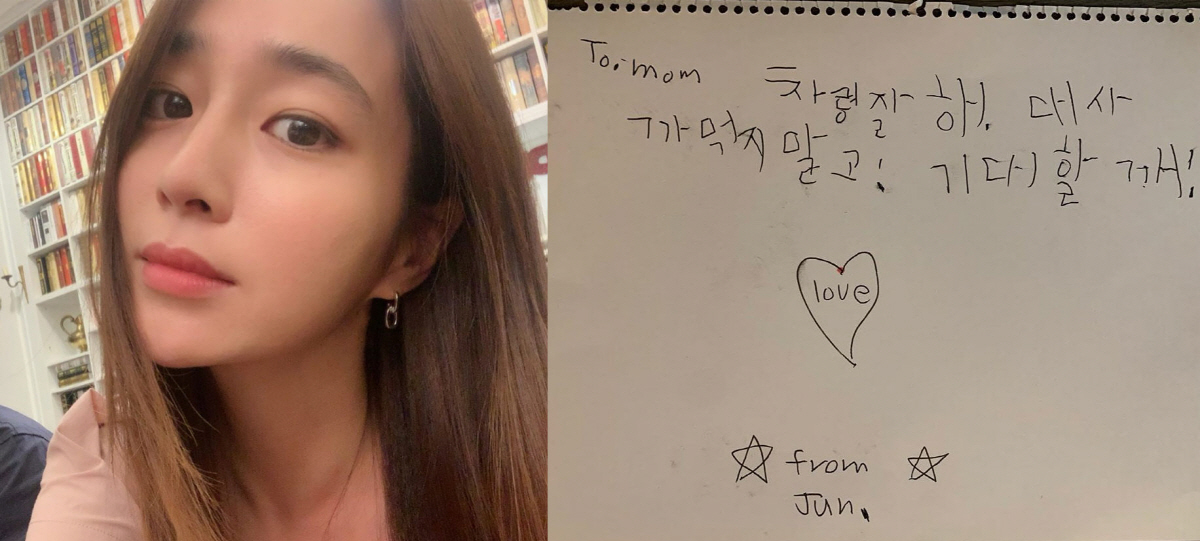 To. mom 차령잘 해! 대사
까먹지 말고! 기대할 께!
love
from
Jun.